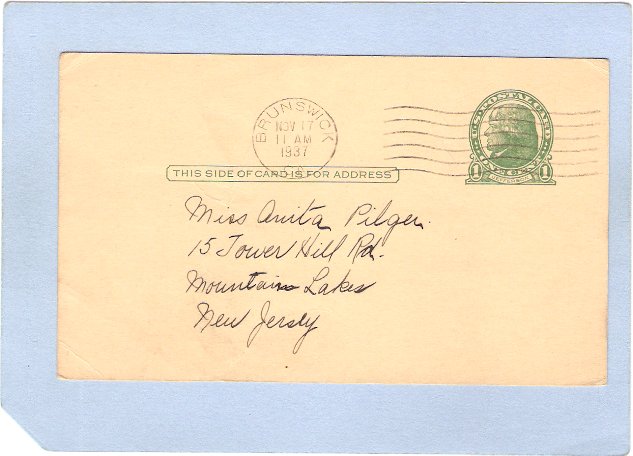 BRUNSWICK
NOV 17
11 AM
1937
GA.
U.S. POSTAL CARD
1 1
THIS SIDE OF CARD IS FOR ADDRESS
Miss Anita Pilger.
15 Tower Hill Rd.
Mountain Lakes
New Jersey